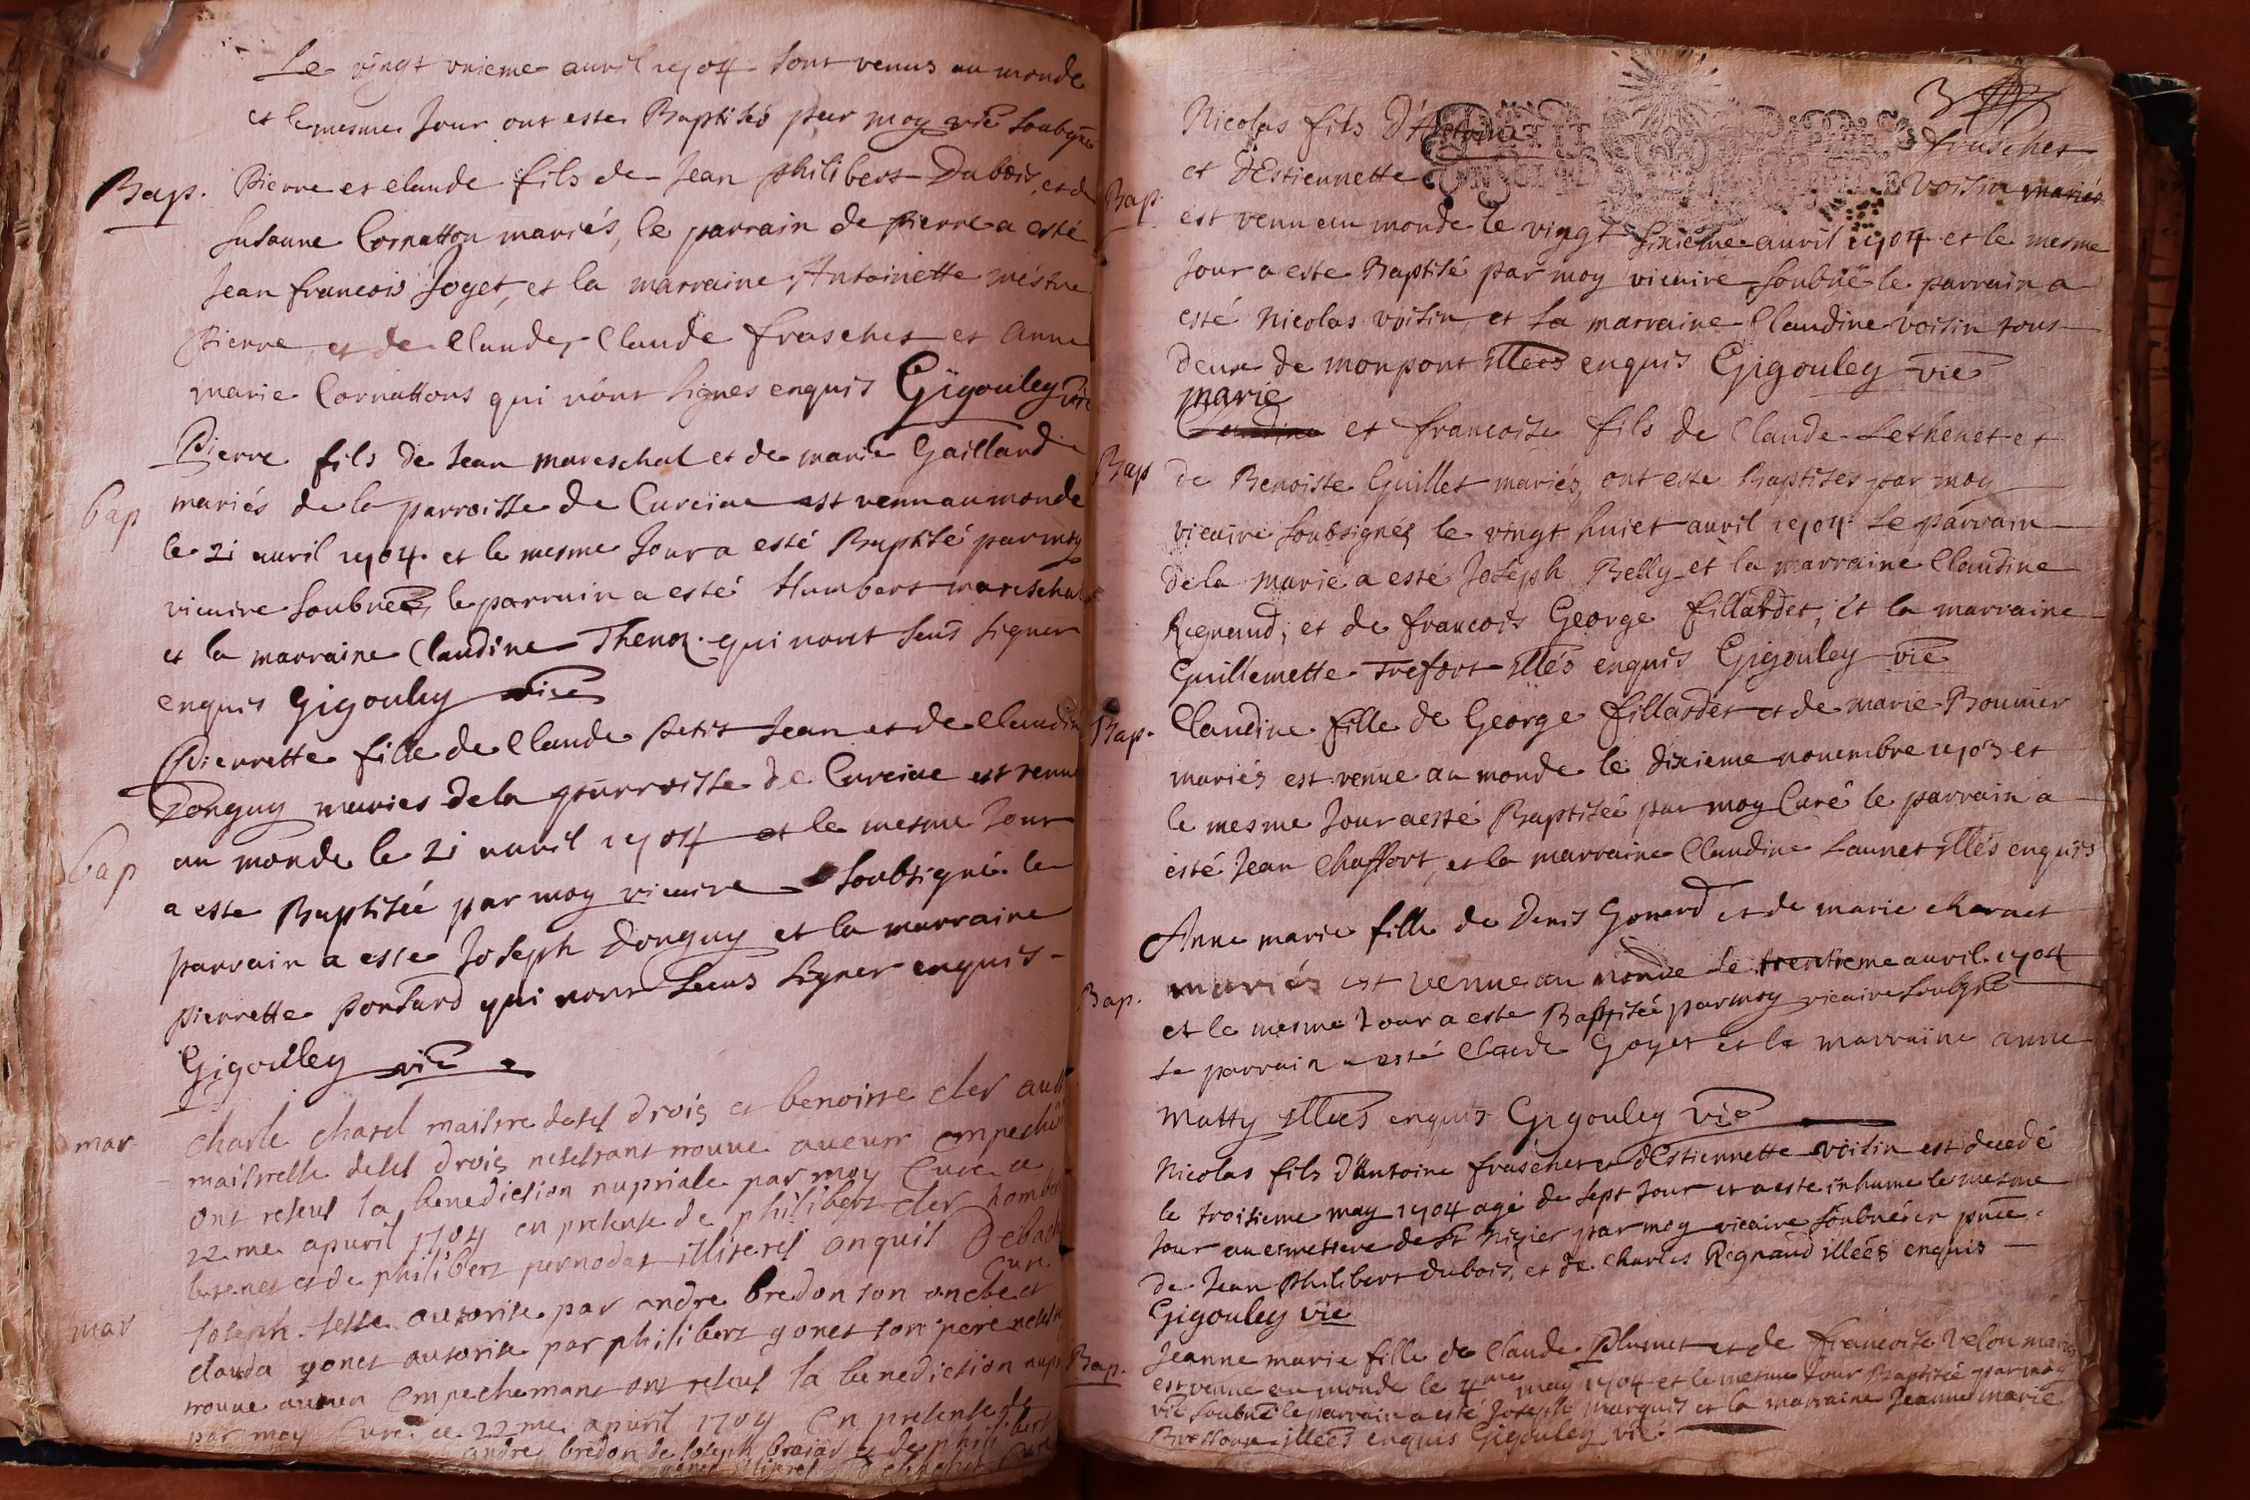 Le vingt unieme auril 1704 sont venus au monde
et le mesme Jour ont este Baptisés par moy vic soubgne
Bap. Pierre et claude fils de Jean philibert Dubois, et de
Susanne Cornatton mariés, le parrain de pierre a esté
Jean francois Joget, et la marraine Antoinette mestre
Pierre, et de Claude, Claude frasches et Anne
marie Cornattons qui n'ont signes enquis Gigouley vic
Pierre fils de Jean mareschal et de marie Gaillard
Bap mariés de la parroisse de Cureiae est venu au monde
le 21 auril 1704 et le mesme Jour a esté Baptisé par moy
vicaire soubné, le parrain a esté Humbert mareschal
et la marraine Claudine Thenoz qui n'ont seus signer
enquis Gigouley vic
Pierrette fille de Claude petit Jean et de Claudine
Donguy maries de la parroisse de Cureiae est venue
Bap au monde le 21 auril 1704 et le mesme Jour
a este Baptisée par moy vicaire soubsigné le
parrain a este Joseph Donguy et la marraine
pierrette ponsard qui n'ont seus signer enquis
Gigouley vic
mar Charle chatel maistre de sel drois et benoitte cler aussi
maistresse desel drois nesestant trouue aucun empechem
ont reseul la benediction nuptiale par moy Cure ce
22me apuril 1704 en presense de philibert cler hombert
besenet et de philibert pernodat illiterel anquil Debach
Cure
mar Joseph teste autorise par andre bredon son oncle et
clauda gonet autorise par philibert gonet son pere nesest
trouue aucun empechemant ont reseul la benediction nupt
par moy Cure ce 22me apuril 1704 en presense de
andre bredon de Joseph broiad et de philibert
3
Nicolas fils D'Antoine frasches
Bap. et d'Estiennette Voisin mariés
est venu au monde le vingt sixieme auril 1704 et le mesme
Jour a este Baptisé par moy vicaire soubné le parrain a
esté Nicolas voisin, et la marraine Claudine voisin tous
deux de monpont illées enquis Gigouley vic
marie
Claudine et francoise fils de Claude Lethenet et
Bap de Benoiste Guillet mariés, ont este Baptises par moy
vicaire soubsigné le vingt huict auril 1704 Le parrain
de la marie a esté Joseph Belly et la marraine Claudine
Regnaud, et de francois George fillardet, et la marraine
Guillemette Trefort illés enquis Gigouley vic
Bap. Claudine fille de George fillardet et de marie Bouuier
mariés est venüe au monde le dixieme nouembre 1703 et
le mesme Jour a esté Baptisée par moy Curé le parrain a
esté Jean Chaffort, et la marraine Claudine Launet illés enquis
Anne marie fille de Denis Gonard et de marie charnet
Bap. mariés est venue au monde le trentieme auril 1704
et le mesme Jour a este Baptisée par moy vicaire soubgné
Le parrain a esté Claude Goyet et la marraine anne
Matty illées enquis Gigouley Vic
Nicolas fils d'Antoine frasches et d'Estiennette voisin est decedé
le troisieme may 1704 agé de sept Jour et a este inhumé le mesme
Jour au cimetiere de St Nizier par moy vicaire soubné en pnce
de Jean Philibert Dubois, et de Charles Regnaud illées enquis
Gigouley vic
Bap. Jeanne marie fille de Claude Plumet et de francoise Velon mariés
est venue au monde le 4me may 1704 et le mesme Jour Baptisée par moy
vic soubné le parrain a esté Joseph marquis et la marraine Jeanne marie
Bressoux illées enquis Gigouley vic